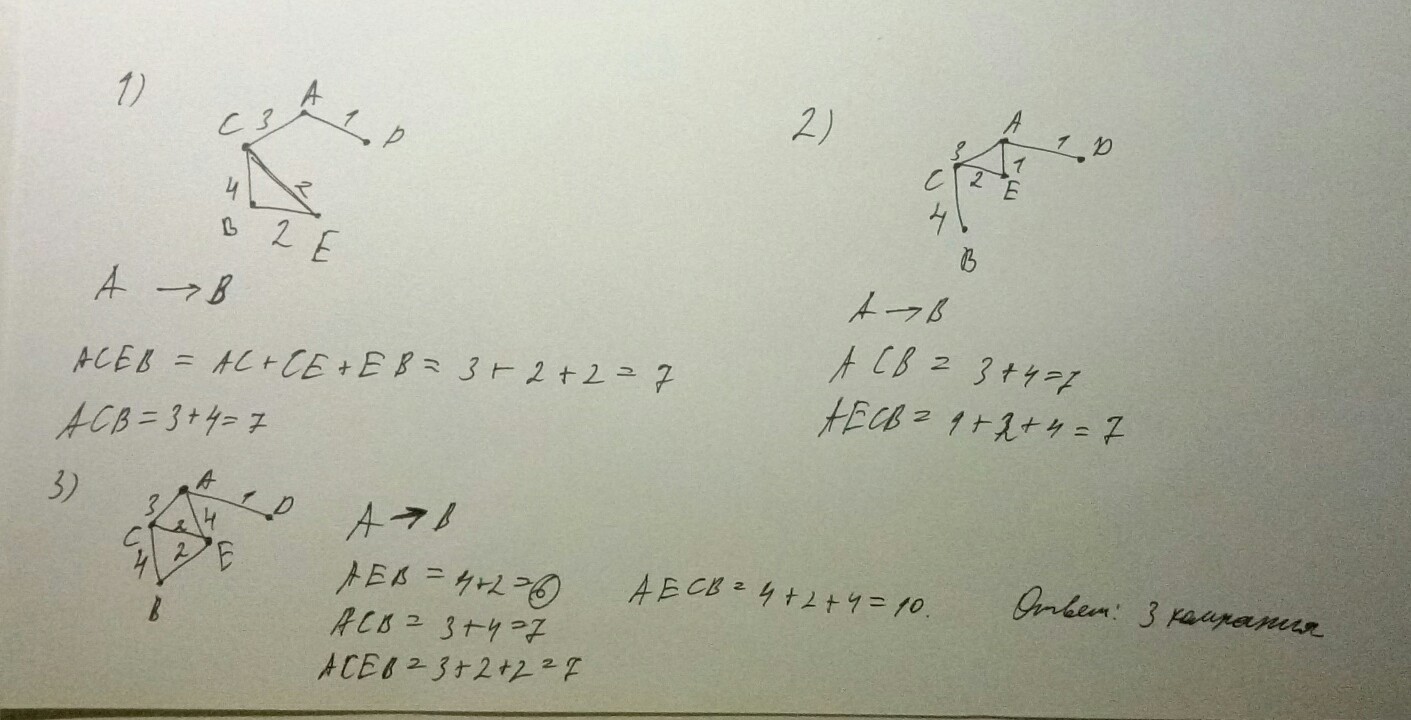 1)
A
C 3 1 D
4 2
B 2 E
A → B
ACEB = AC+CE+EB = 3+2+2=7
ACB=3+4=7
2)
A
3 1 D
C 2 1 E
4
B
A → B
ACB = 3+4=7
AECB= 1+2+4=7
3)
A
3 1 D
C 2 4
4 2 E
B
A → B
AEB = 4+2=6
ACB = 3+4=7
ACEB=3+2+2=7
AECB=4+2+4=10.
Ответ: 3 компания